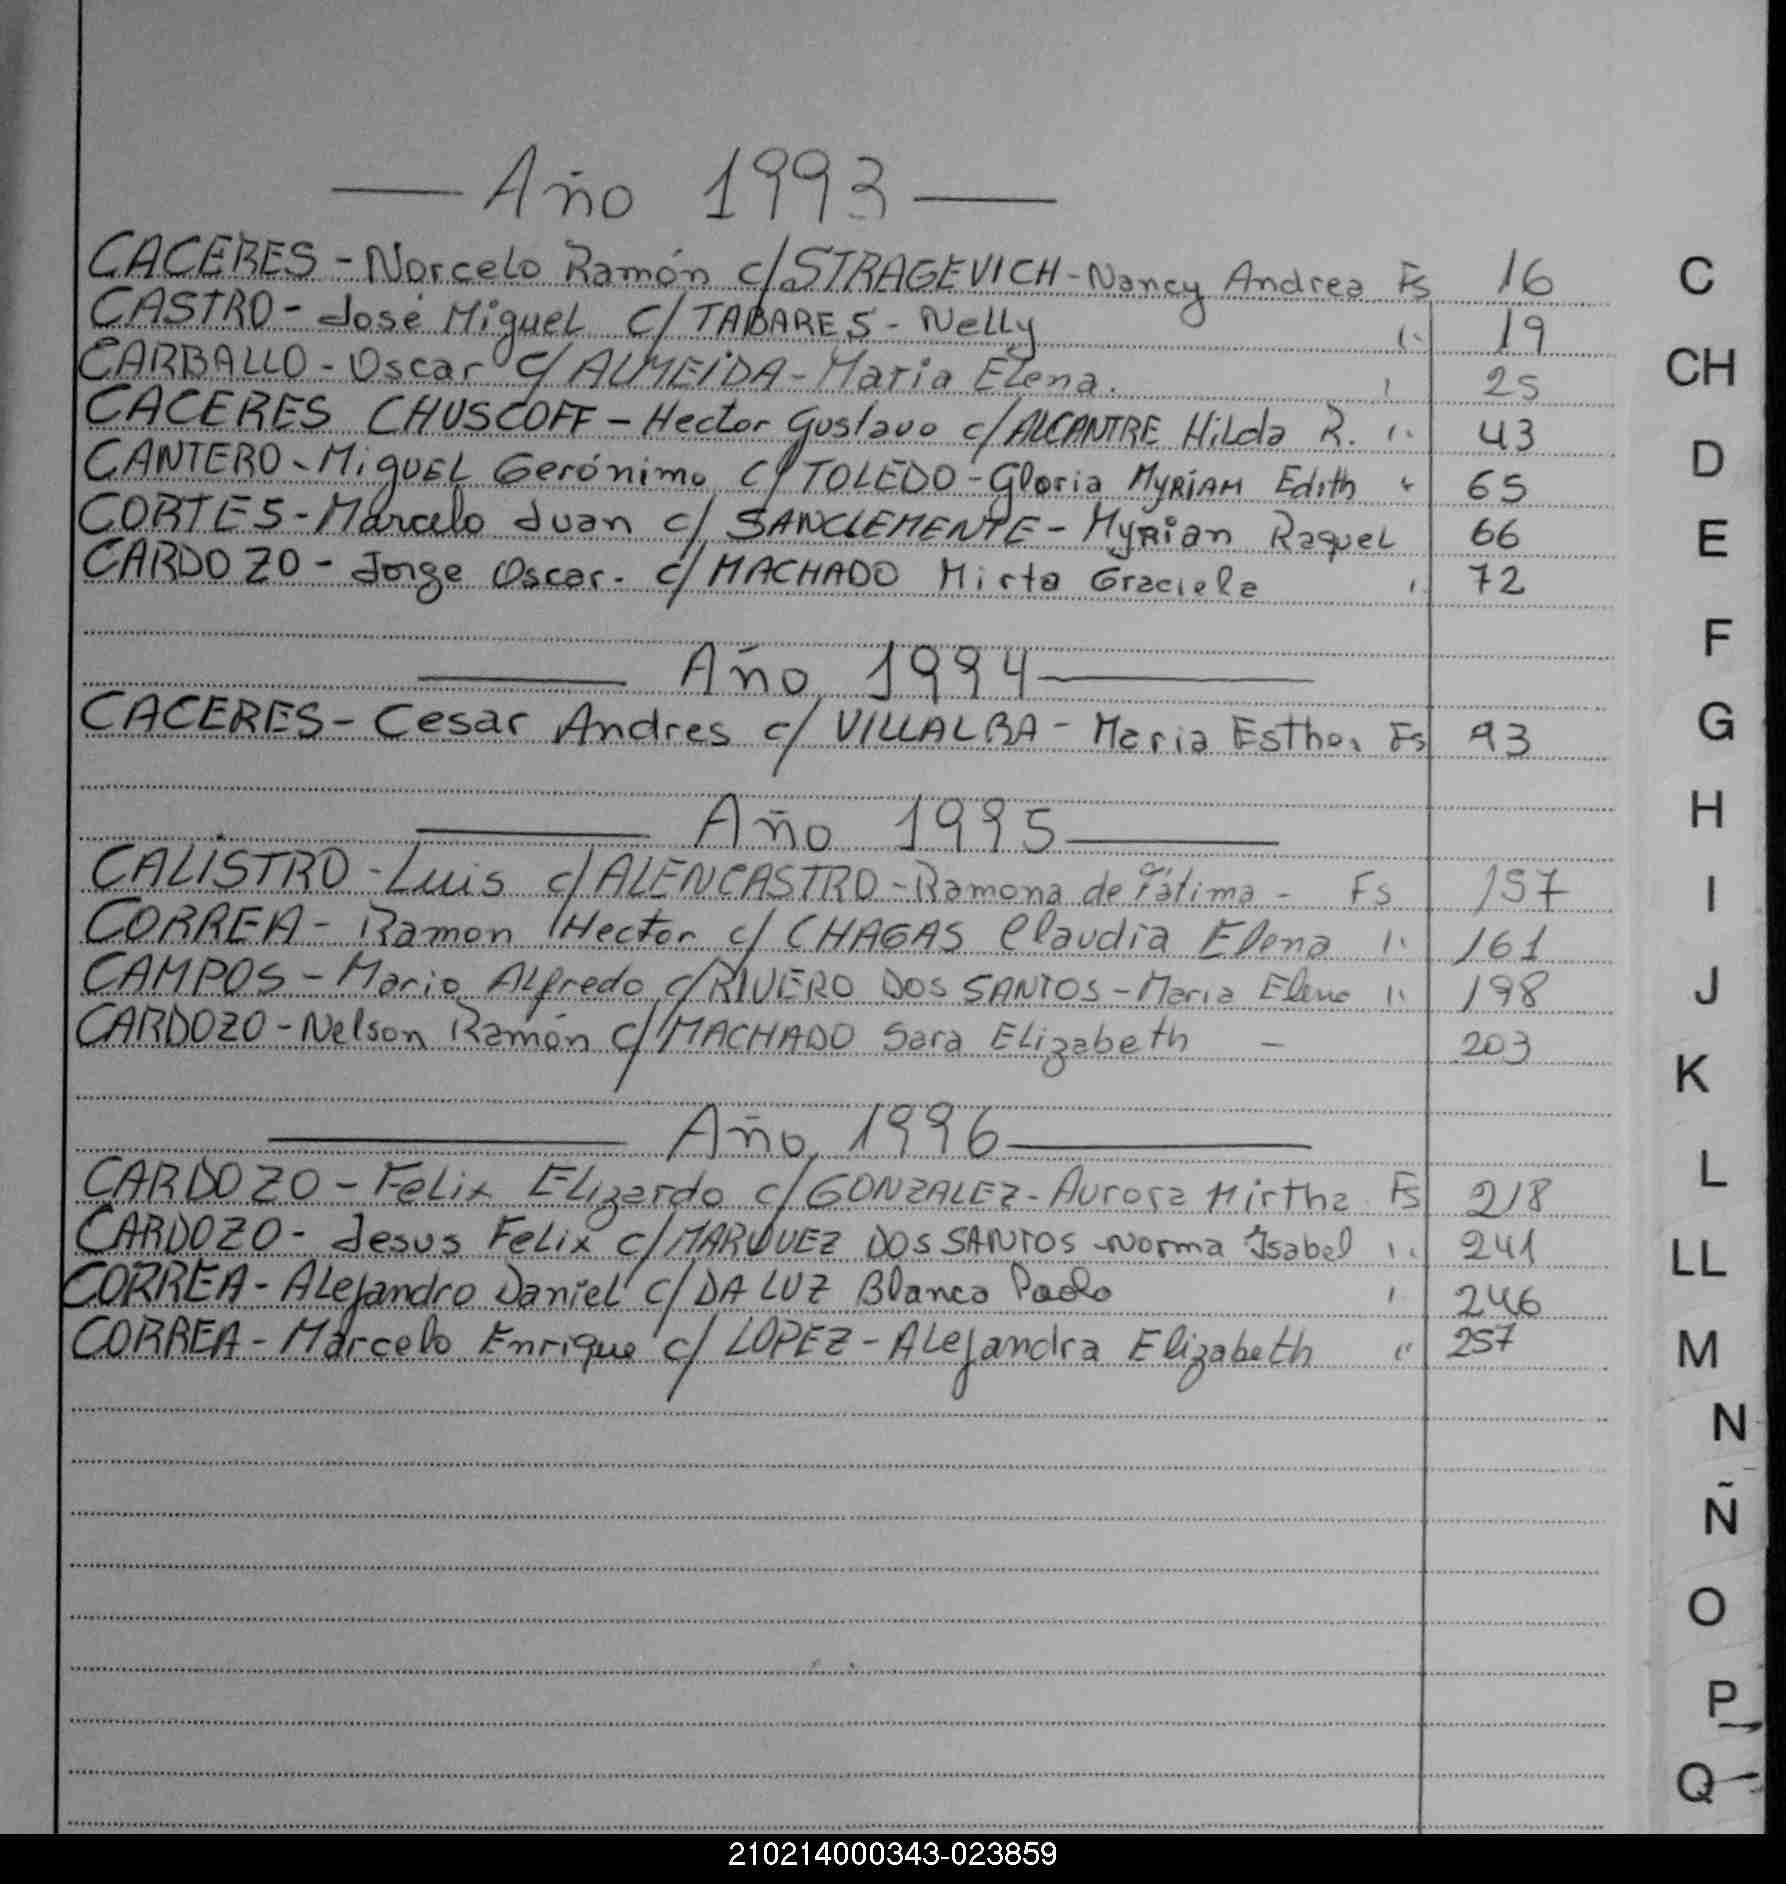 — Año 1993 —
CACERES - Norcelo Ramón c/ STRAGEVICH - Nancy Andrea Fs 16
CASTRO - José Miguel c/ TABARES - Nelly " 19
CARBALLO - Oscar c/ ALMEIDA - Maria Elena. " 25
CACERES CHUSCOFF - Hector Gustavo c/ ALCANTRE Hilda R. " 43
CANTERO - Miguel Gerónimo c/ TOLEDO - Gloria Myriam Edith " 65
CORTES - Marcelo Juan c/ SANCLEMENTE - Myrian Raquel 66
CARDOZO - Jorge Oscar. c/ MACHADO Mirta Graciela " 72
— Año 1994 —
CACERES - Cesar Andres c/ VILLALBA - Maria Esther Fs 93
— Año 1995 —
CALISTRO - Luis c/ ALENCASTRO - Ramona de Fátima - Fs 157
CORREA - Ramon Hector c/ CHAGAS Claudia Elena " 161
CAMPOS - Mario Alfredo c/ RIVERO DOS SANTOS - Maria Elena " 198
CARDOZO - Nelson Ramón c/ MACHADO Sara Elizabeth - 203
— Año 1996 —
CARDOZO - Felix Elizardo c/ GONZALEZ - Aurora Mirtha Fs 218
CARDOZO - Jesus Felix c/ MARQUEZ DOS SANTOS - Norma Isabel " 241
CORREA - Alejandro Daniel c/ DA LUZ Blanca Paola " 246
CORREA - Marcelo Enrique c/ LOPEZ - Alejandra Elizabeth " 257
C
CH
D
E
F
G
H
I
J
K
L
LL
M
N
Ñ
O
P
Q
210214000343-023859